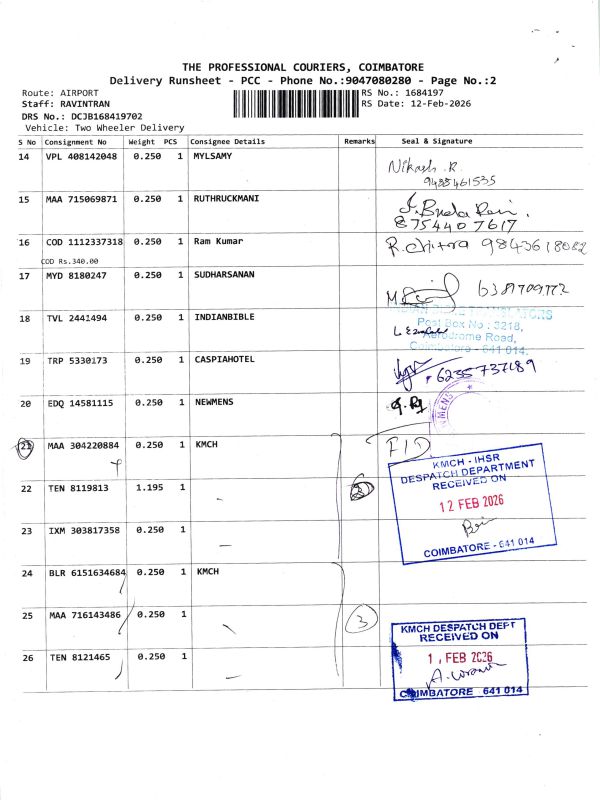 THE PROFESSIONAL COURIERS, COIMBATORE
Delivery Runsheet - PCC - Phone No.:9047080280 - Page No.:2
Route: AIRPORT
Staff: RAVINTRAN
DRS No.: DCJB168419702
Vehicle: Two Wheeler Delivery
RS No.: 1684197
RS Date: 12-Feb-2026
S No Consignment No Weight PCS Consignee Details Remarks Seal & Signature
14 VPL 408142048 0.250 1 MYLSAMY
Nikash. R.
9485461535
15 MAA 715069871 0.250 1 RUTHRUCKMANI
8754407617
16 COD 1112337318 0.250 1 Ram Kumar R. chitra 9843618082
COD Rs.340.00
17 MYD 8180247 0.250 1 SUDHARSANAN
6381709772
18 TVL 2441494 0.250 1 INDIANBIBLE
INDIAN BIBLE TRANSLATORS
Post Box No : 3218,
Aerodrome Road,
Coimbatore - 641 014.
19 TRP 5330173 0.250 1 CASPIAHOTEL
6235737189
20 EDQ 14581115 0.250 1 NEWMENS
21 MAA 304220884 0.250 1 KMCH
22 TEN 8119813 1.195 1
23 IXM 303817358 0.250 1
KMCH - IHSR
DESPATCH DEPARTMENT
RECEIVED ON
12 FEB 2026
COIMBATORE - 641 014
24 BLR 6151634684 0.250 1 KMCH
25 MAA 716143486 0.250 1 3
26 TEN 8121465 0.250 1
KMCH DESPATCH DEPT
RECEIVED ON
1 FEB 2026
COIMBATORE 641 014